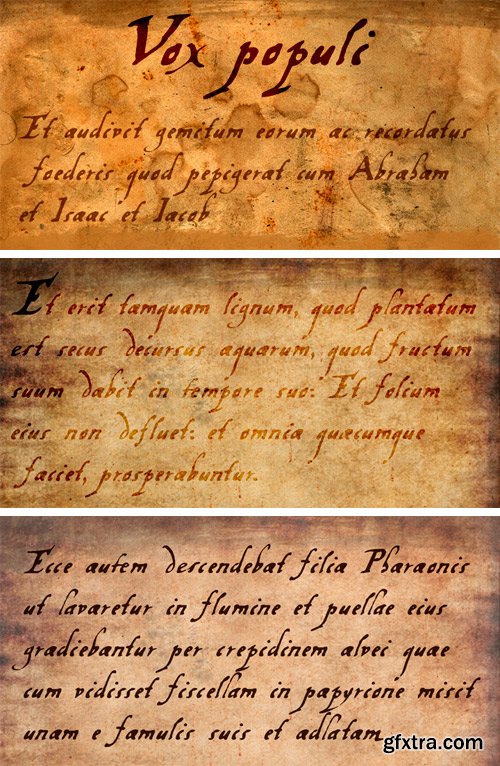 Vox populi
Et audivit gemitum eorum ac recordatus
foederis quod pepigerat cum Abraham
et Isaac et Iacob
Et erit tamquam lignum, quod plantatum
est secus decursus aquarum, quod fructum
suum dabit in tempore suo: Et folium
eius non defluet: et omnia quæcumque
faciet, prosperabuntur.
Ecce autem descendebat filia Pharaonis
ut lavaretur in flumine et puellae eius
gradiebantur per crepidinem alvei quae
cum vidisset fiscellam in papyrione misit
unam e famulis suis et adlatam
gfxtra.com